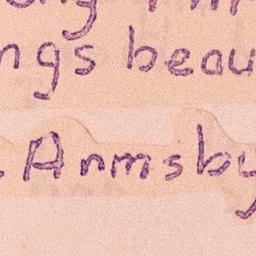 ngs beau
. Anmsby